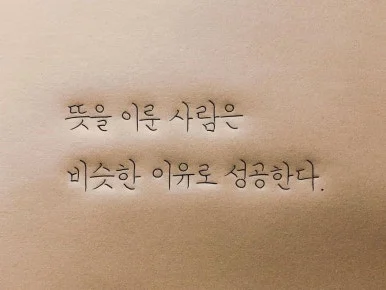 뜻을 이룬 사람은
비슷한 이유로 성공한다.